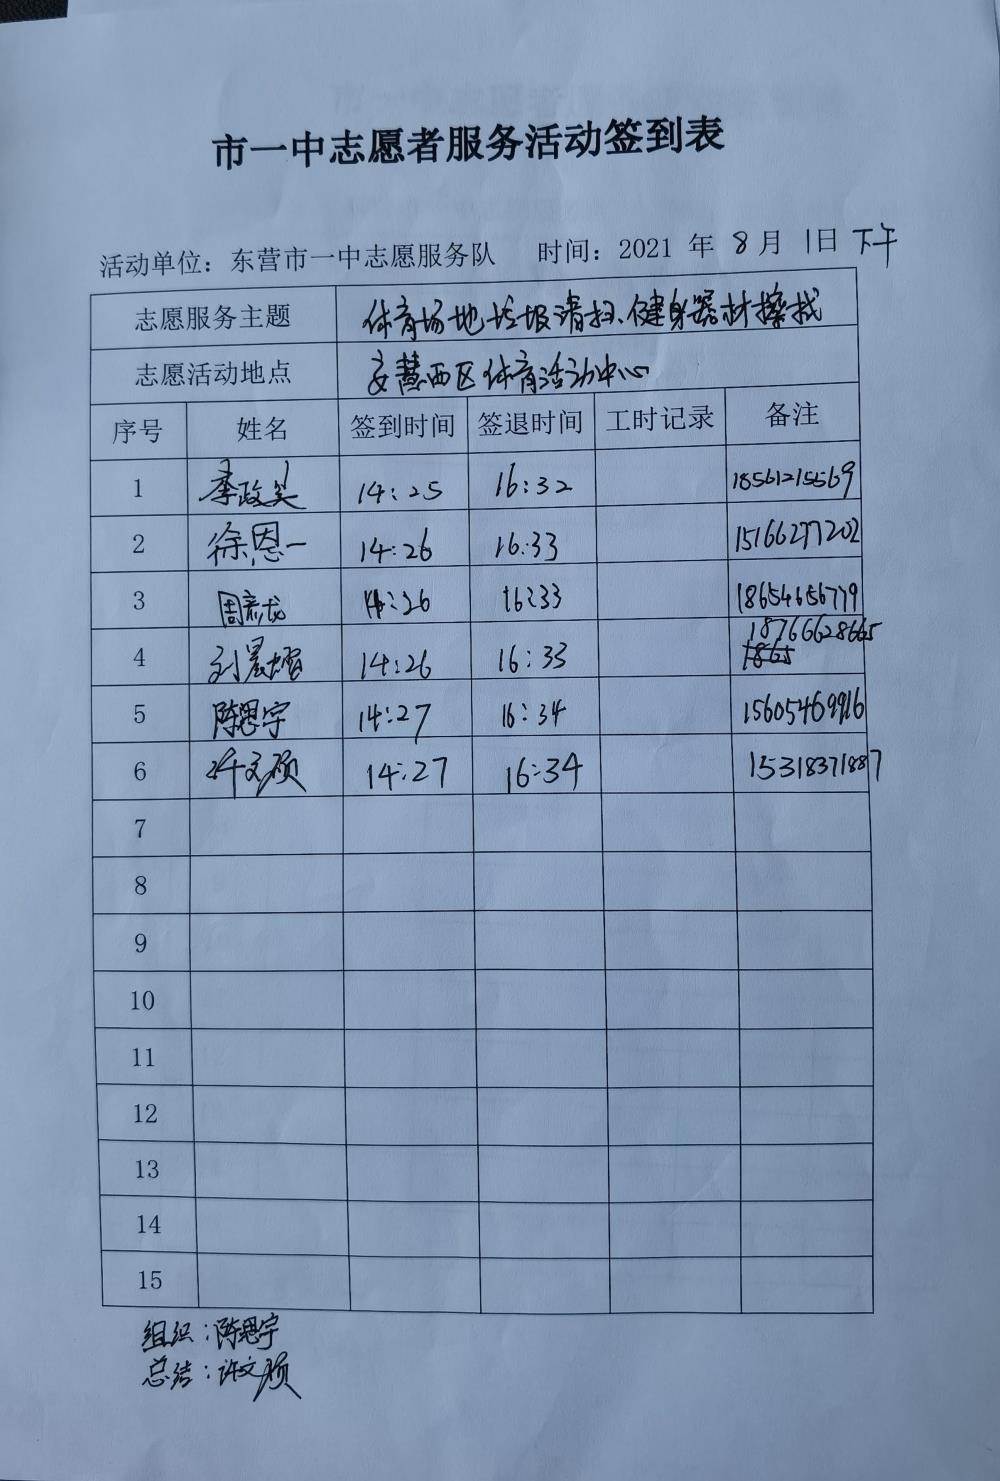 市一中志愿者服务活动签到表
活动单位：东营市一中志愿服务队 时间：2021 年 8 月 1日 下午
志愿服务主题 体育场地垃圾清扫、健身器材擦拭
志愿活动地点 安慧西区体育活动中心
序号 姓名 签到时间 签退时间 工时记录 备注
1 李政昊 14:25 16:32 18561215569
2 徐恩一 14:26 16:33 15166277202
3 周彦龙 14:26 16:33 18654656779
4 刘晨熠 14:26 16:33 18766628665
5 陈思宇 14:27 16:34 15605469916
6 许文硕 14:27 16:34 15318371887
7
8
9
10
11
12
13
14
15
组织：陈思宇
总结：许文硕